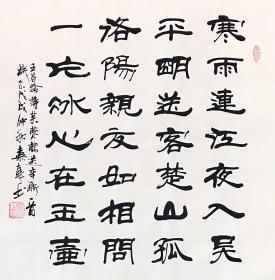 寒雨連江夜入吳
平明送客楚山孤
洛陽親友如相問
一片冰心在玉壺
王昌齡詩芙蓉樓送辛漸一首
戊戌仲秋